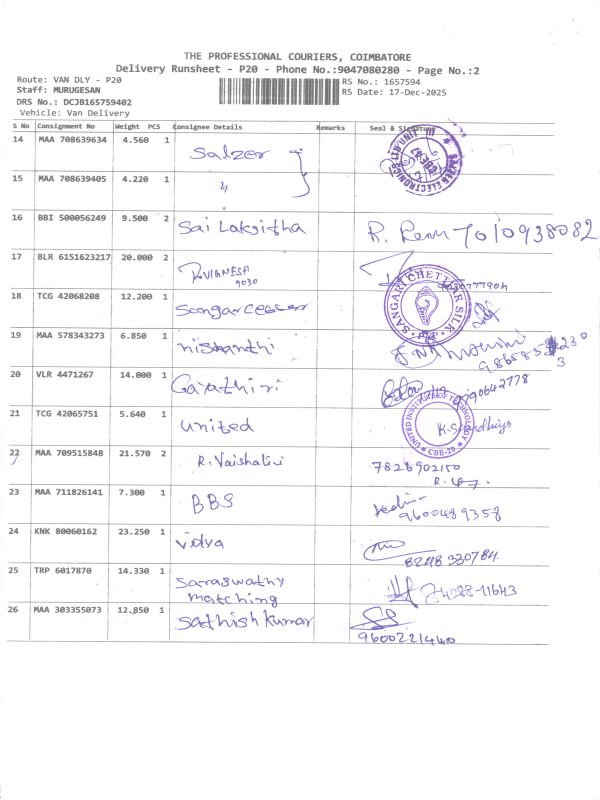 THE PROFESSIONAL COURIERS, COIMBATORE
Delivery Runsheet - P20 - Phone No.:9047080280 - Page No.:2
Route: VAN DLY - P20 RS No.: 1657594
Staff: MURUGESAN RS Date: 17-Dec-2025
DRS No.: DCJB165759402
Vehicle: Van Delivery
S No Consignment No Weight PCS Consignee Details Remarks Seal & Signature
14 MAA 708639634 4.560 1 Salzer
15 MAA 708639405 4.220 1 "
16 BBI 500056249 9.500 2 Sai Laksitha R. Renu 7010938082
17 BLR 6151623217 20.000 2 R.VIGNESH
9030
18 TCG 42068208 12.200 1 SANGARI CHETTIAR SILK
19 MAA 578343273 6.850 1 Nishandhi
20 VLR 4471267 14.000 1 Gayathiri
21 TCG 42065751 5.640 1 United UNITED INSTITUTE OF TECHNOLOGY CBE-20
22 MAA 709515848 21.570 2 R. Vaishalini 7826902150
23 MAA 711826141 7.300 1 BBS
9600489358
24 KNK 80060162 23.250 1 Vidya
8248 330784
25 TRP 6017870 14.330 1 Saraswathy
matching
26 MAA 303355073 12.850 1 Sathish kumar
9600221440